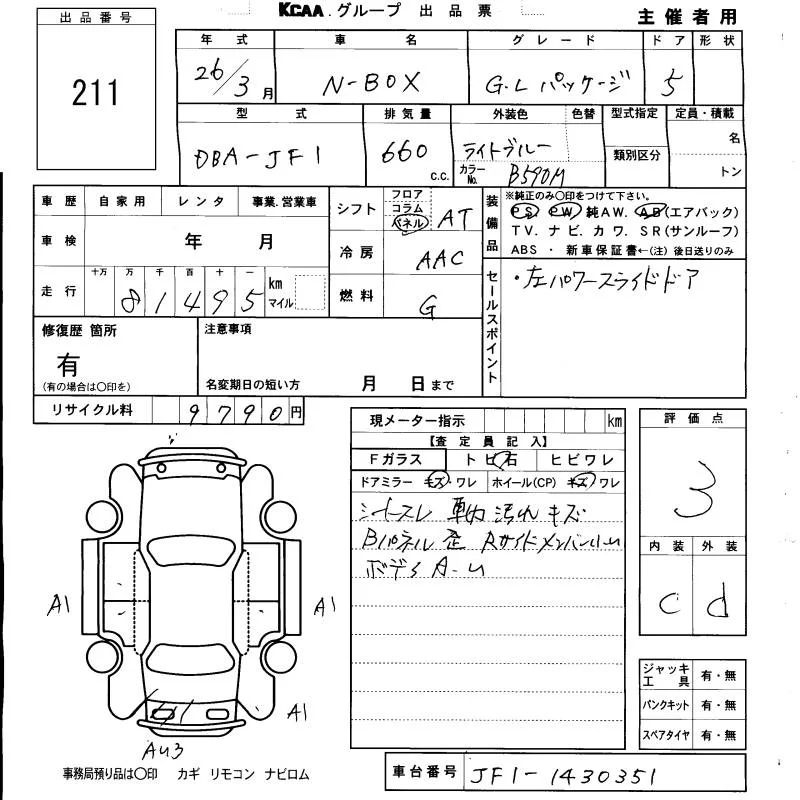 KCAA.グループ 出品票
主催者用
出品番号
211
年式 車名 グレード ドア 形状
26/3月 N-BOX G.Lパッケージ 5
型式 排気量 外装色 色替 型式指定 定員・積載
DBA-JF1 660 c.c. ライトブルー 類別区分 名
カラーNo. B590M トン
車歴 自家用 レンタ 事業.営業車
車検 年 月
走行 十万 万 千 百 十 一
81495 km マイル
シフト フロア コラム パネル AT
冷房 AAC
燃料 G
装備品
※純正のみ〇印をつけて下さい。
PS PW 純AW. AB(エアバック)
TV. ナビ. カワ. SR(サンルーフ)
ABS ・ 新車保証書←(注) 後日送りのみ
セールスポイント
・左パワースライドドア
修復歴 箇所
有
(有の場合は〇印を)
注意事項
名変期日の短い方 月 日まで
リサイクル料 9790円
現メーター指示 km
【査定員記入】
Fガラス トビ石 ヒビワレ
ドアミラー キズ・ワレ ホイール(CP) キズ・ワレ
シートスレ 車内 汚れ キズ
Bパネル 歪 RサイドメンバーU
ボディ A-U
評価点
3
内装 外装
C d
A1
A1
A1
AU3
ジャッキ工具 有・無
パンクキット 有・無
スペアタイヤ 有・無
事務局預り品は〇印 カギ リモコン ナビロム
車台番号 JF1-1430351